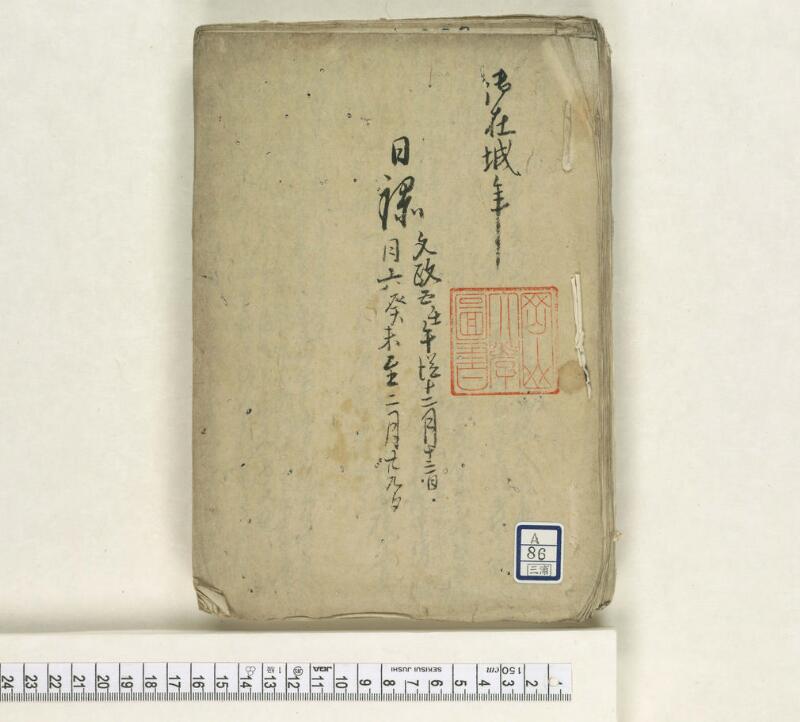 御在城年
日記
文政五壬午従十二月十二日
同六癸未至二月廿九日
岡山
大学
図書
A
86
三浦
24 23 22 21 20 19 18 17 16 15 14 13 12 11 10 9 8 7 6 5 4 3 2 1
1級
JQA
SEKISUI JUSHI
cm
150